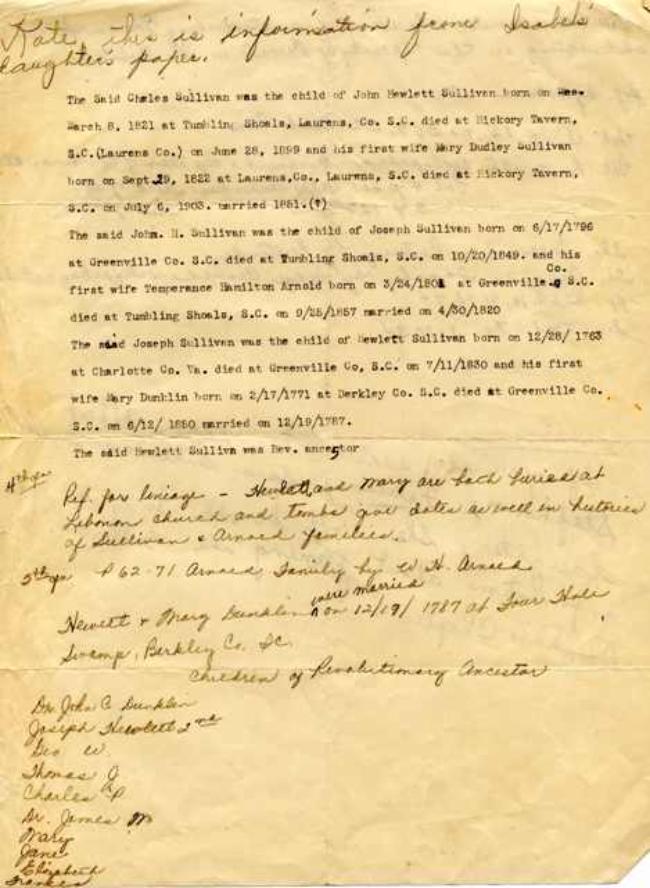 Kate, this is information from Isabel's
daughters paper.
The Said Chales Sullivan was the child of John Hewlett Sullivan born on
March 8, 1821 at Tumbling Shoals, Laurens, Co. S.C. died at Hickory Tavern,
S.C.(Laurens Co.) on June 28, 1899 and his first wife Mary Dudley Sullivan
born on Sept.29, 1822 at Laurens,Co., Laurens, S.C. died at Hickory Tavern,
S.C. on July 6, 1903. married 1851.(?)
The said John. H. Sullivan was the child of Joseph Sullivan born on 6/17/1796
at Greenville Co. S.C. died at Tumbling Shoals, S.C. on 10/20/1849. and his
Co.
first wife Temperance Hamilton Arnold born on 3/24/1802 at Greenville. S.C.
died at Tumbling Shoals, S.C. on 9/25/1857 married on 4/30/1820
The said Joseph Sullivan was the child of Hewlett Sullivan born on 12/28/ 1763
at Charlotte Co. Va. died at Greenville Co, S.C. on 7/11/1830 and his first
wife Mary Dunklin born on 2/17/1771 at Berkley Co. S.C. died at Greenville Co.
S.C. on 6/12/ 1850 married on 12/19/1787.
The said Hewlett Sulliva was Rev. ancestor
4th gen
Ref. for lineage - Hewlett and Mary are both buried at
Lebanon church and tombs give dates as well in histories
of Sullivan & Arnold families.
5th gen P 62-71 Arnold Family by W H. Arnold
were married
Hewlett & Mary Dunklin on 12/19/ 1787 at Four Hole
Swamp, Berkley Co. SC.
Children of Revolutionary Ancestor
Dr. John C Dunklin
Joseph Hewlett 2nd
Geo W.
Thomas J
Charles P
Dr. James M
Mary
Jane
Elizabeth
Frances